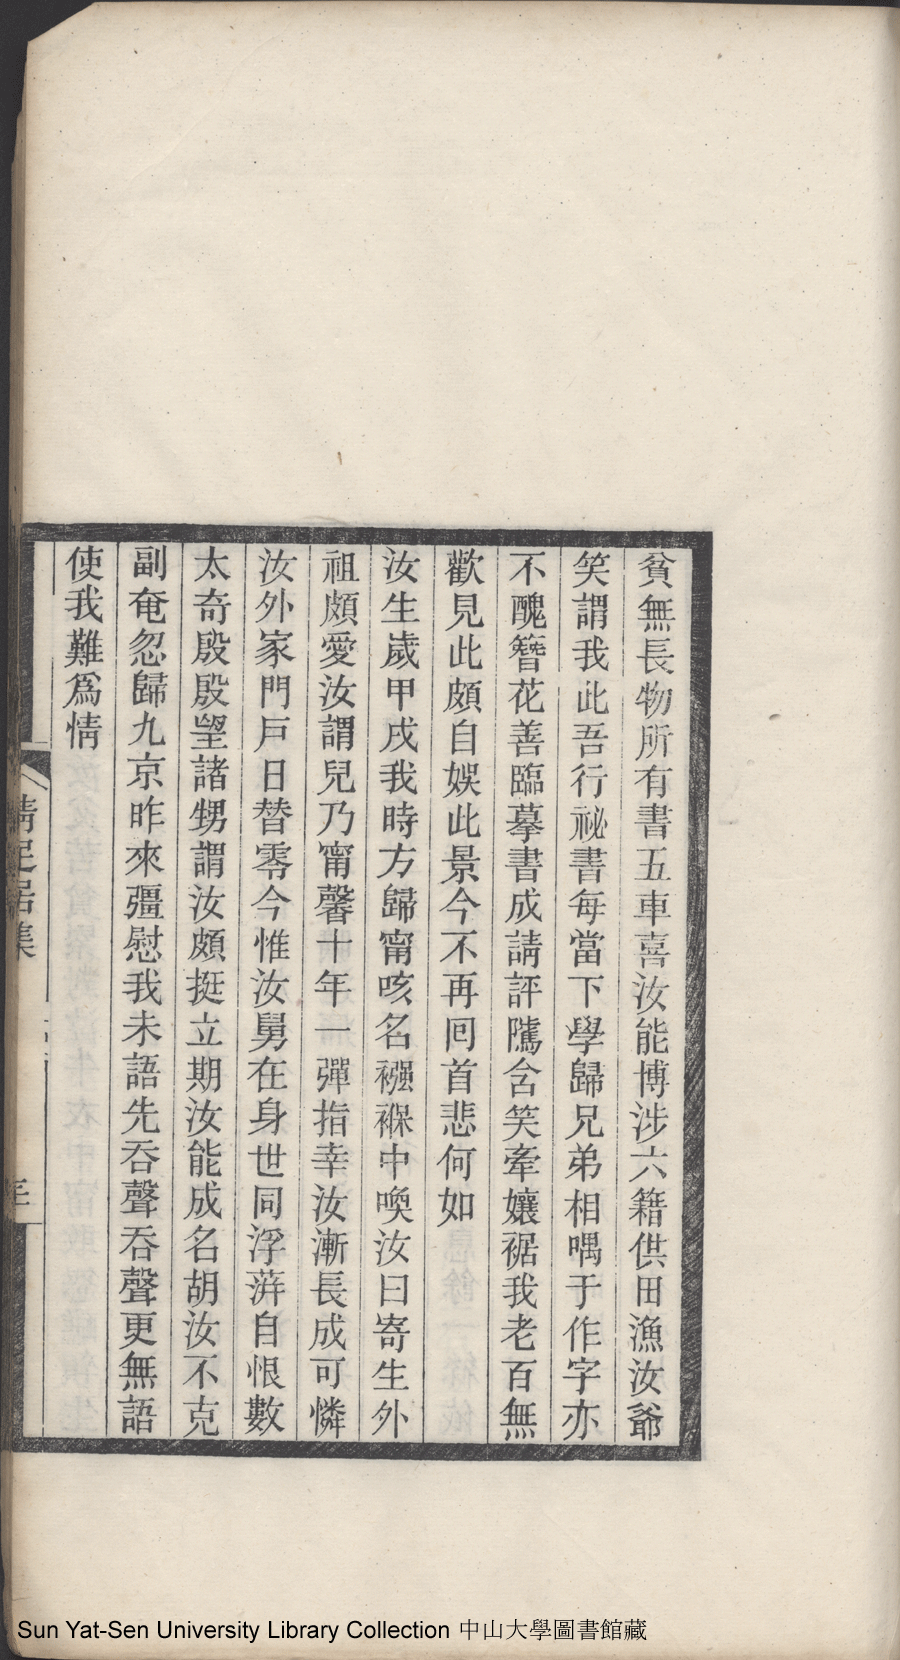 貧無長物所有書五車喜汝能博涉六籍供田漁汝爺
笑謂我此吾行祕書每當下學歸兄弟相喁于作字亦
不醜簪花善臨摹書成請評隲含笑牽孃裾我老百無
歡見此頗自娛此景今不再囘首悲何如
汝生歲甲戌我時方歸甯咳名襁褓中喚汝曰寄生外
祖頗愛汝謂兒乃甯馨十年一彈指幸汝漸長成可憐
汝外家門戸日替零今惟汝舅在身世同浮蓱自恨數
太奇殷殷望諸甥謂汝頗挺立期汝能成名胡汝不克
副奄忽歸九京昨來彊慰我未語先吞聲吞聲更無語
使我難爲情
居集
Sun Yat-Sen University Library Collection 中山大學圖書館藏